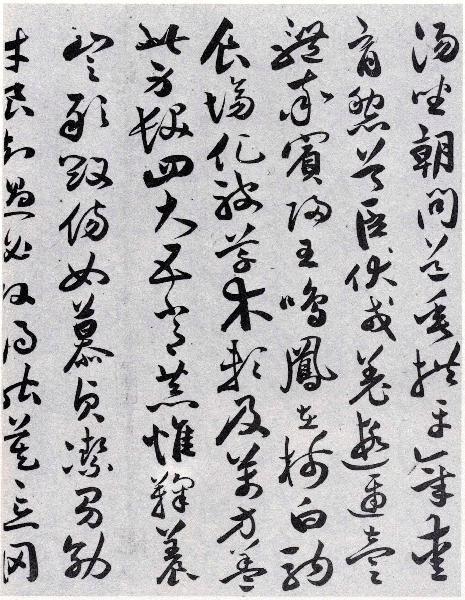 湯坐朝問道垂拱平章愛
育黎首臣伏戎羌遐邇壹
體率賓歸王鳴鳳在樹白駒
食場化被草木賴及萬方蓋
此身髮四大五常恭惟鞠養
豈敢毀傷女慕貞潔男效
才良知過必改得能莫忘罔